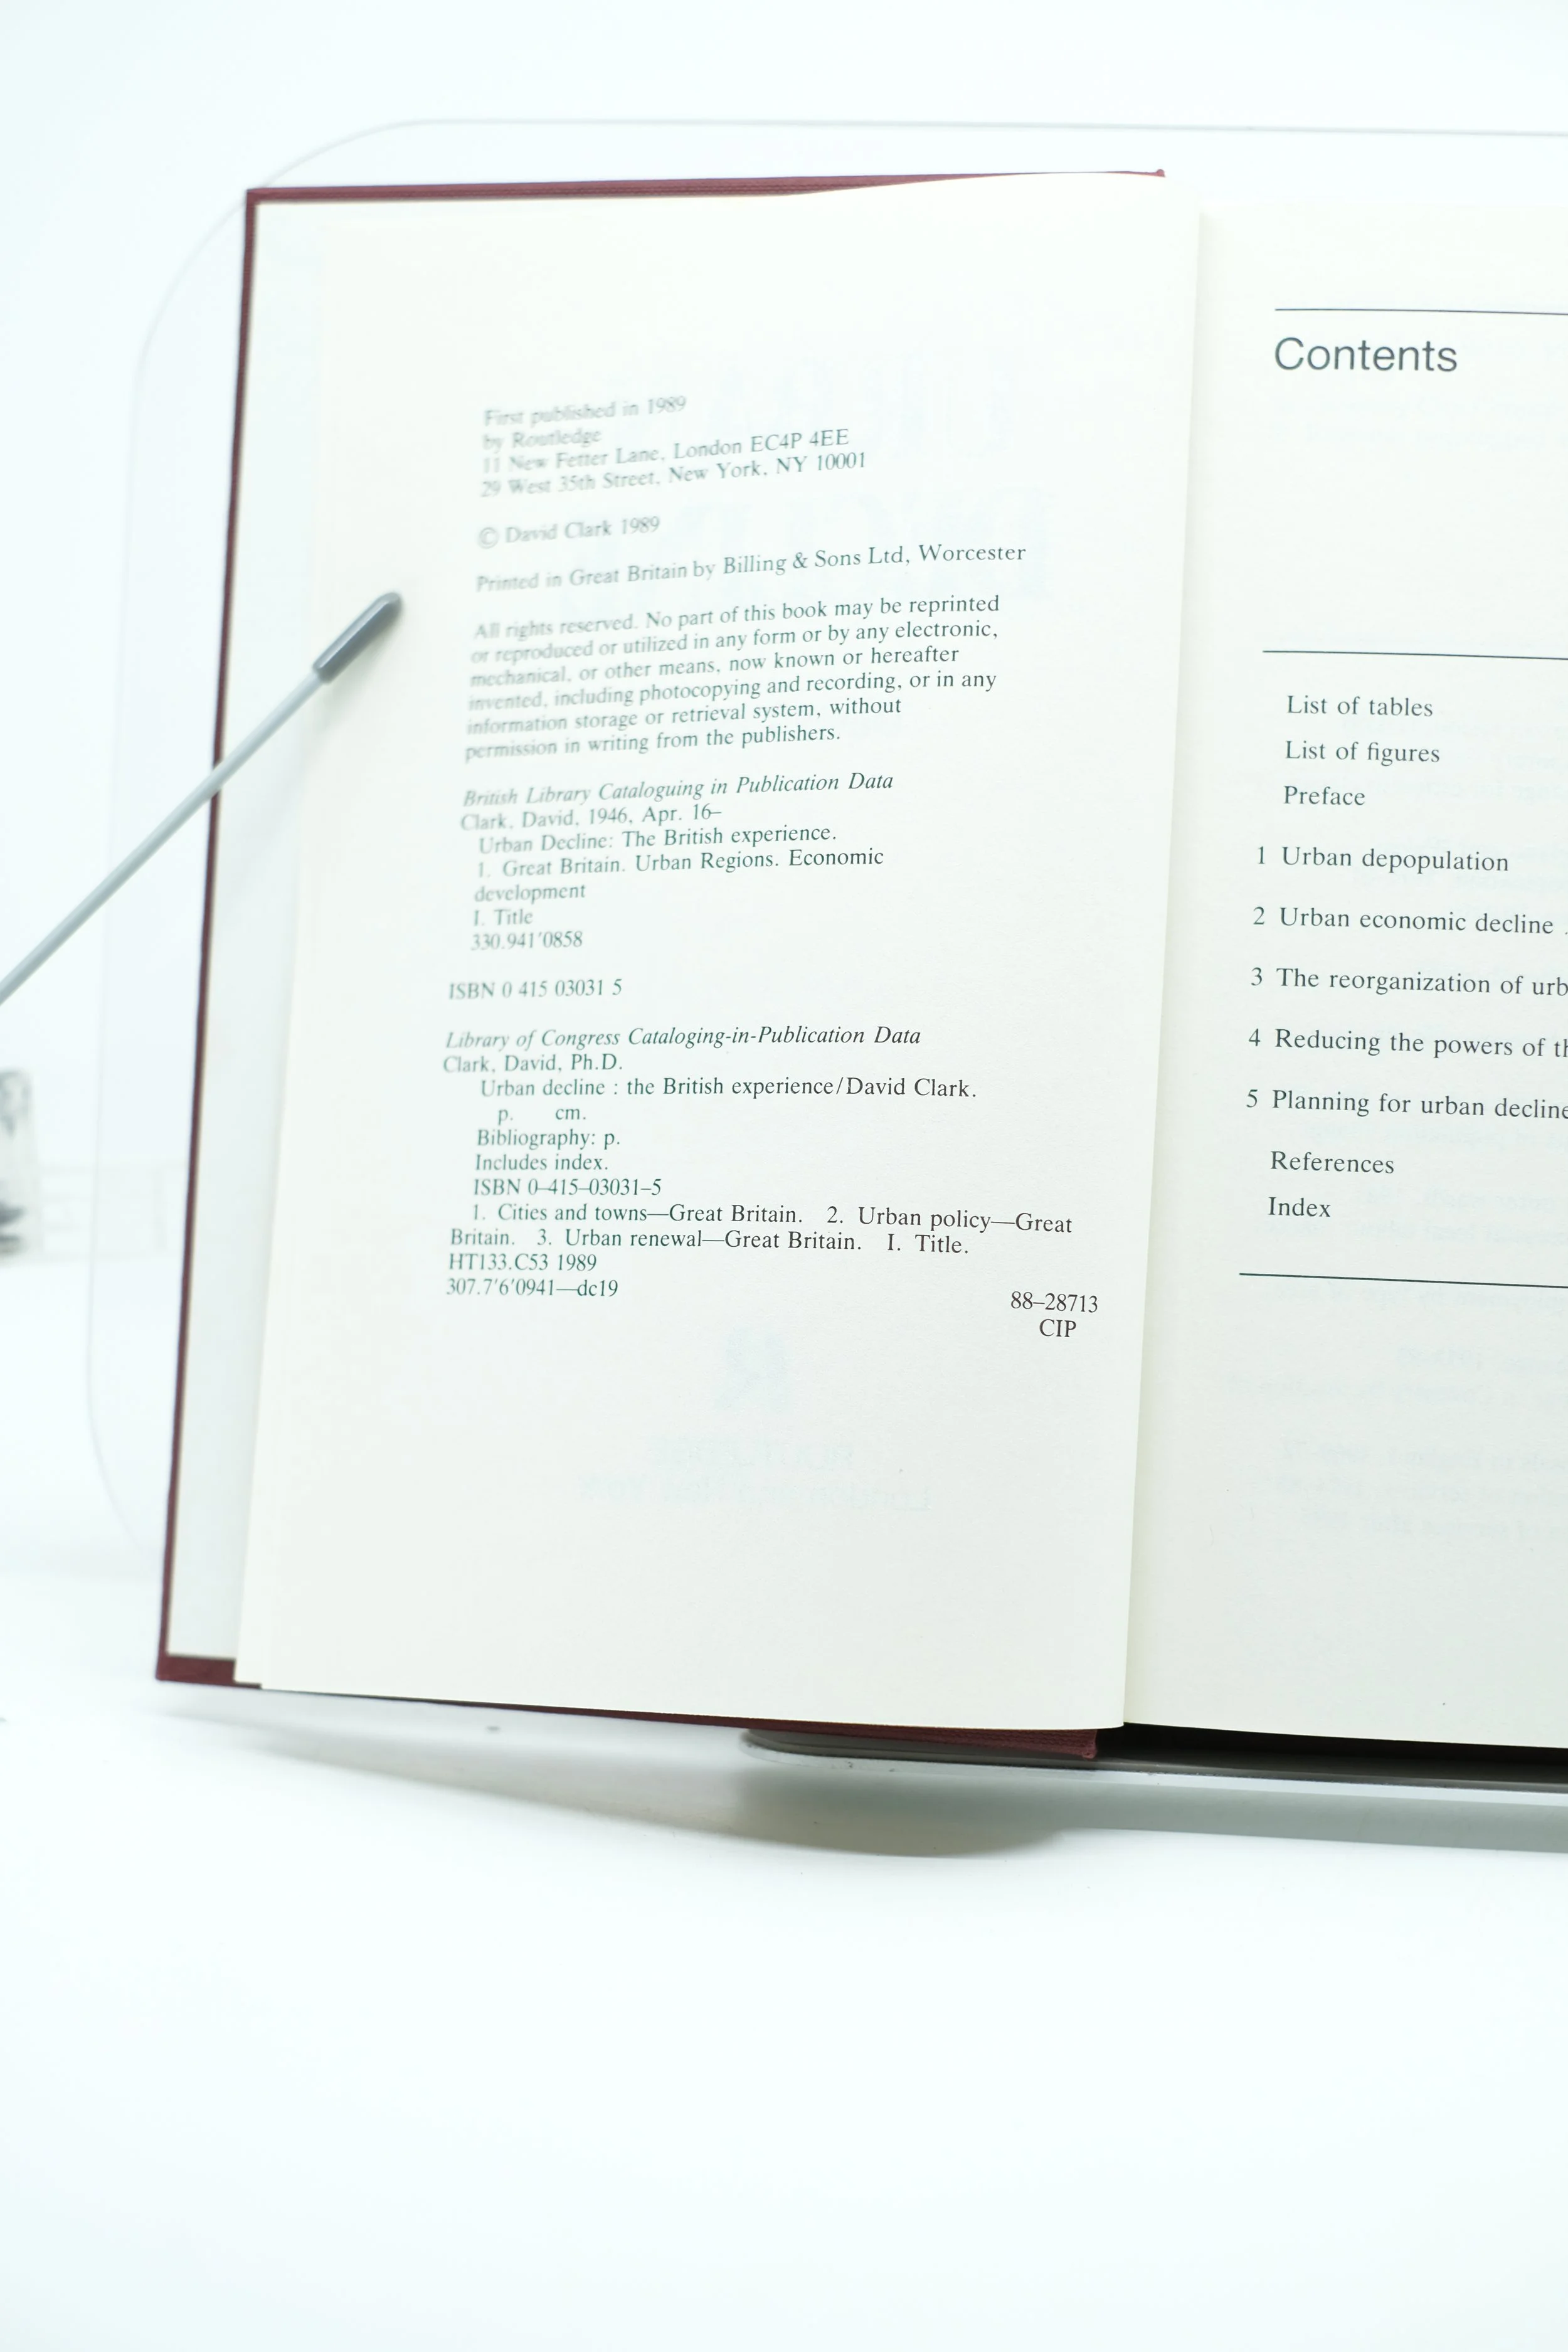 First published in 1989
by Routledge
11 New Fetter Lane, London EC4P 4EE
29 West 35th Street, New York, NY 10001
© David Clark 1989
Printed in Great Britain by Billing & Sons Ltd, Worcester
All rights reserved. No part of this book may be reprinted
or reproduced or utilized in any form or by any electronic,
mechanical, or other means, now known or hereafter
invented, including photocopying and recording, or in any
information storage or retrieval system, without
permission in writing from the publishers.
British Library Cataloguing in Publication Data
Clark, David, 1946, Apr. 16–
Urban Decline: The British experience.
1. Great Britain. Urban Regions. Economic
development
I. Title
330.941'0858
ISBN 0 415 03031 5
Library of Congress Cataloging-in-Publication Data
Clark, David, Ph.D.
Urban decline : the British experience/David Clark.
p. cm.
Bibliography: p.
Includes index.
ISBN 0–415–03031–5
1. Cities and towns—Great Britain. 2. Urban policy—Great
Britain. 3. Urban renewal—Great Britain. I. Title.
HT133.C53 1989
307.7'6'0941—dc19
88–28713
CIP
Contents
List of tables
List of figures
Preface
1 Urban depopulation
2 Urban economic decline
3 The reorganization of urb
4 Reducing the powers of th
5 Planning for urban decline
References
Index